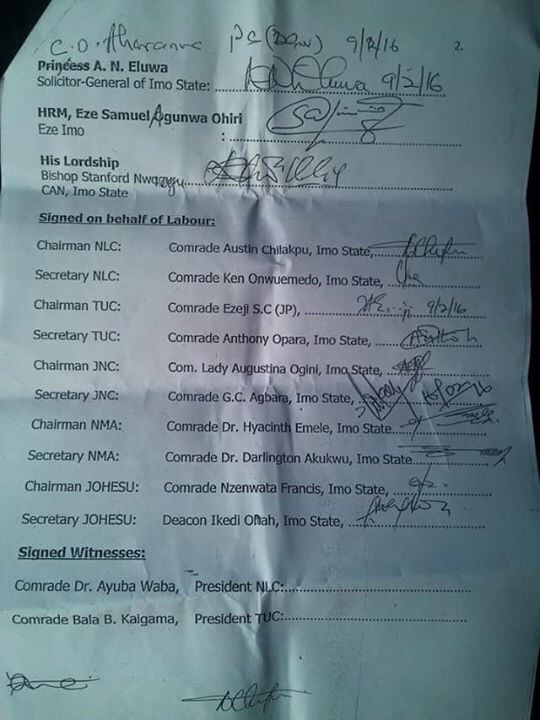 C. O. PS (DGW) 9/2/16 2.
Princess A. N. Eluwa
Solicitor-General of Imo State: Eluwa 9/2/16
HRM, Eze Samuel Agunwa Ohiri
Eze Imo :
His Lordship
Bishop Stanford
CAN, Imo State
Signed on behalf of Labour:
Chairman NLC: Comrade Austin Chilakpu, Imo State,
Secretary NLC: Comrade Ken Onwuemedo, Imo State,
Chairman TUC: Comrade Ezeji S.C (JP), 9/2/16
Secretary TUC: Comrade Anthony Opara, Imo State,
Chairman JNC: Com. Lady Augustina Ogini, Imo State,
Secretary JNC: Comrade G.C. Agbara, Imo State,
Chairman NMA: Comrade Dr. Hyacinth Emele, Imo State
Secretary NMA: Comrade Dr. Darlington Akukwu, Imo State
Chairman JOHESU: Comrade Nzenwata Francis, Imo State,
Secretary JOHESU: Deacon Ikedi Ohah, Imo State,
Signed Witnesses:
Comrade Dr. Ayuba Waba, President NLC:
Comrade Bala B. Kaigama, President TUC: